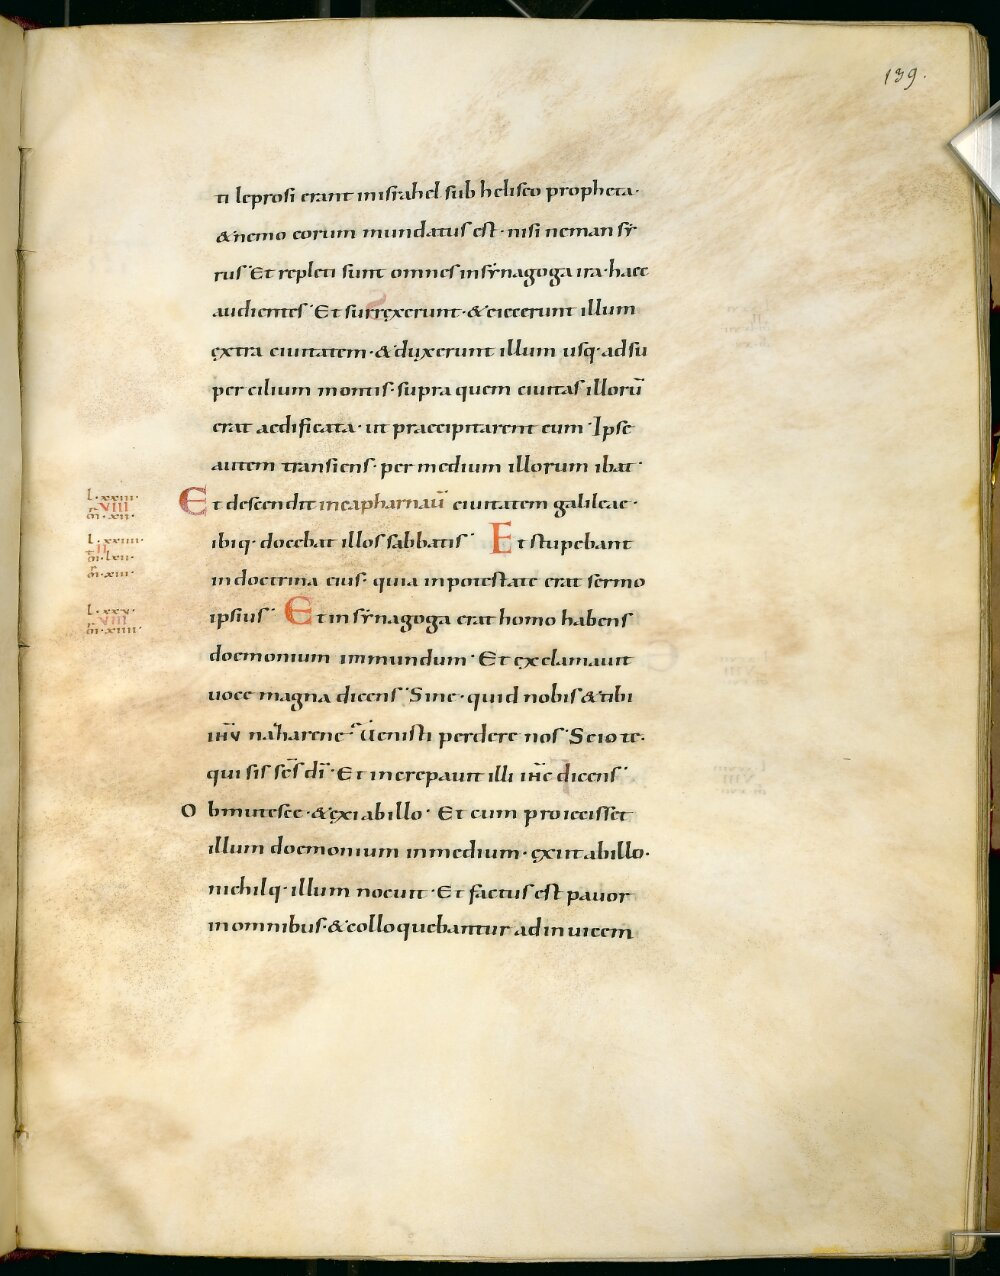 139.
ti leprosi erant in israhel sub heliseo propheta·
& nemo eorum mundatus est· nisi neman sẏ
rus· Et repleti sunt omnes in sẏnagoga ira· haec
audientes· Et surrexerunt· & eiecerunt illum
extra ciuitatem· & duxerunt illum usq· ad su
per cilium montis· supra quem ciuitas illorū
erat aedificata· ut praecipitarent eum· Ipse
autem transiens· per medium illorum ibat·
L·xxiii·
VIII
m̄·xii·
Et descendit in capharnaū ciuitatem galileae·
L·xxiiii·
II
m̄·lxii·
m̄·xiii·
ibiq· docebat illos sabbatis· Et stupebant
in doctrina eius· quia in potestate erat sermo
L·xxv·
VIII
m̄·xiiii·
ipsius· Et in sẏnagoga erat homo habens
doemonium immundum· Et exclamauit
uoce magna dicens· Sine· quid nobis & tibi
ih̄u nazarene· Uenisti perdere nos· Scio te·
qui sis sc̄s dī· Et increpauit illi ih̄c dicens·
Obmutesce· & exi ab illo· Et cum proiecisset
illum doemonium in medium· exiit ab illo·
nichilq· illum nocuit· Et factus est pauor
in omnibus· & colloquebantur ad inuicem